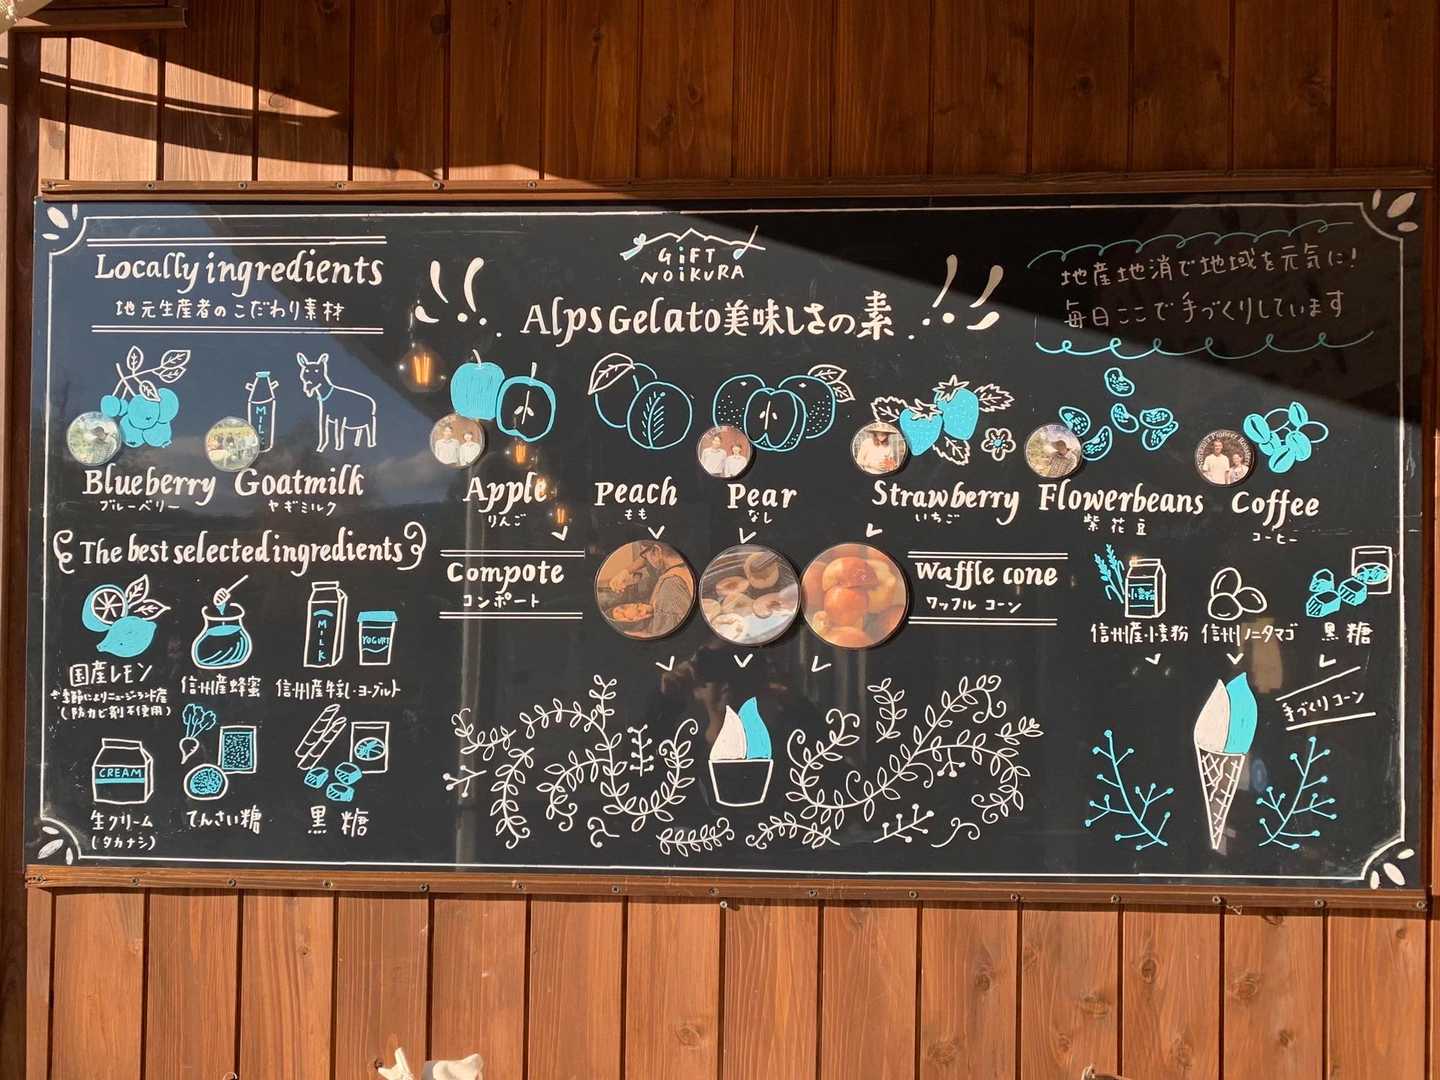 GiFT
NOiKURA
Locally ingredients
地元生産者のこだわり素材
Alps Gelato美味しさの素
地産地消で地域を元気に!
毎日ここで手づくりしています
MILK
Blueberry
ブルーベリー
Goatmilk
ヤギミルク
Apple
りんご
Peach
もも
Pear
なし
Strawberry
いちご
Flowerbeans
紫花豆
Pioneer
Coffee
コーヒー
The best selected ingredients
Compote
コンポート
Waffle cone
ワッフル コーン
小麦粉
信州産小麦粉
信州ノニタマゴ
黒糖
手づくりコーン
MILK
YOGURT
国産レモン
※季節によりニュージーランド産
(防カビ剤不使用)
信州産蜂蜜
信州産牛乳・ヨーグルト
CREAM
生クリーム
(タカナシ)
てんさい糖
黒糖